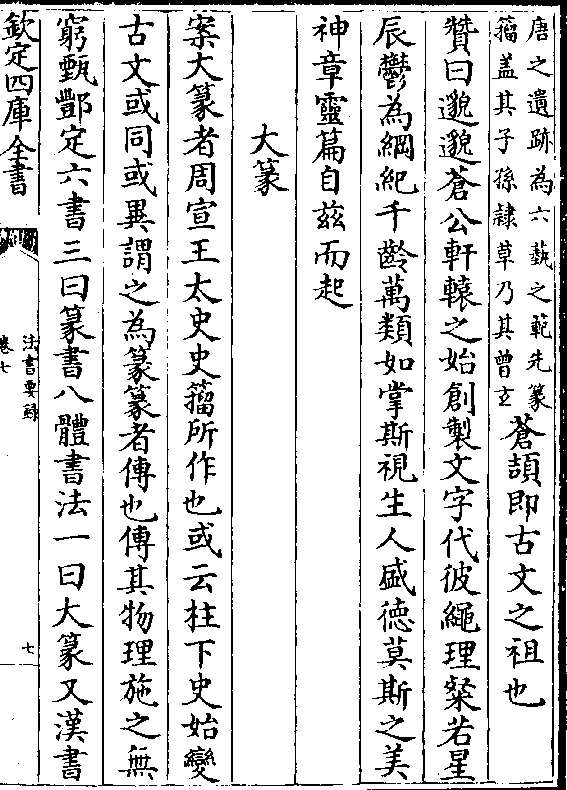 唐之遺跡為六藝之範先篆
籀盖其子孫隸草乃其曾玄
蒼頡即古文之祖也
贊曰邈邈蒼公軒轅之始創製文字代彼繩理粲若星
辰鬱為綱紀千齡萬類如掌斯視生人盛德莫斯之美
神章靈篇自兹而起
大篆
案大篆者周宣王太史史籀所作也或云柱下史始變
古文或同或異謂之為篆篆者傳也傳其物理施之無
窮甄酆定六書三曰篆書八體書法一曰大篆又漢書
欽定四庫全書
法書要錄
卷七
七